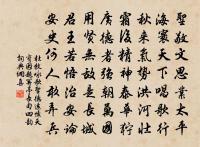 聖敬文思業太平
海寰天下唱歌行
秋來氣勢洪河壯
霜後精神泰華獰
廣德者強朝萬國
用賢無敵是長城
君王若悟治安論
安史何人敢弄兵
杜牧詠歌聖德遠懷天
寶因題關亭長句四韻